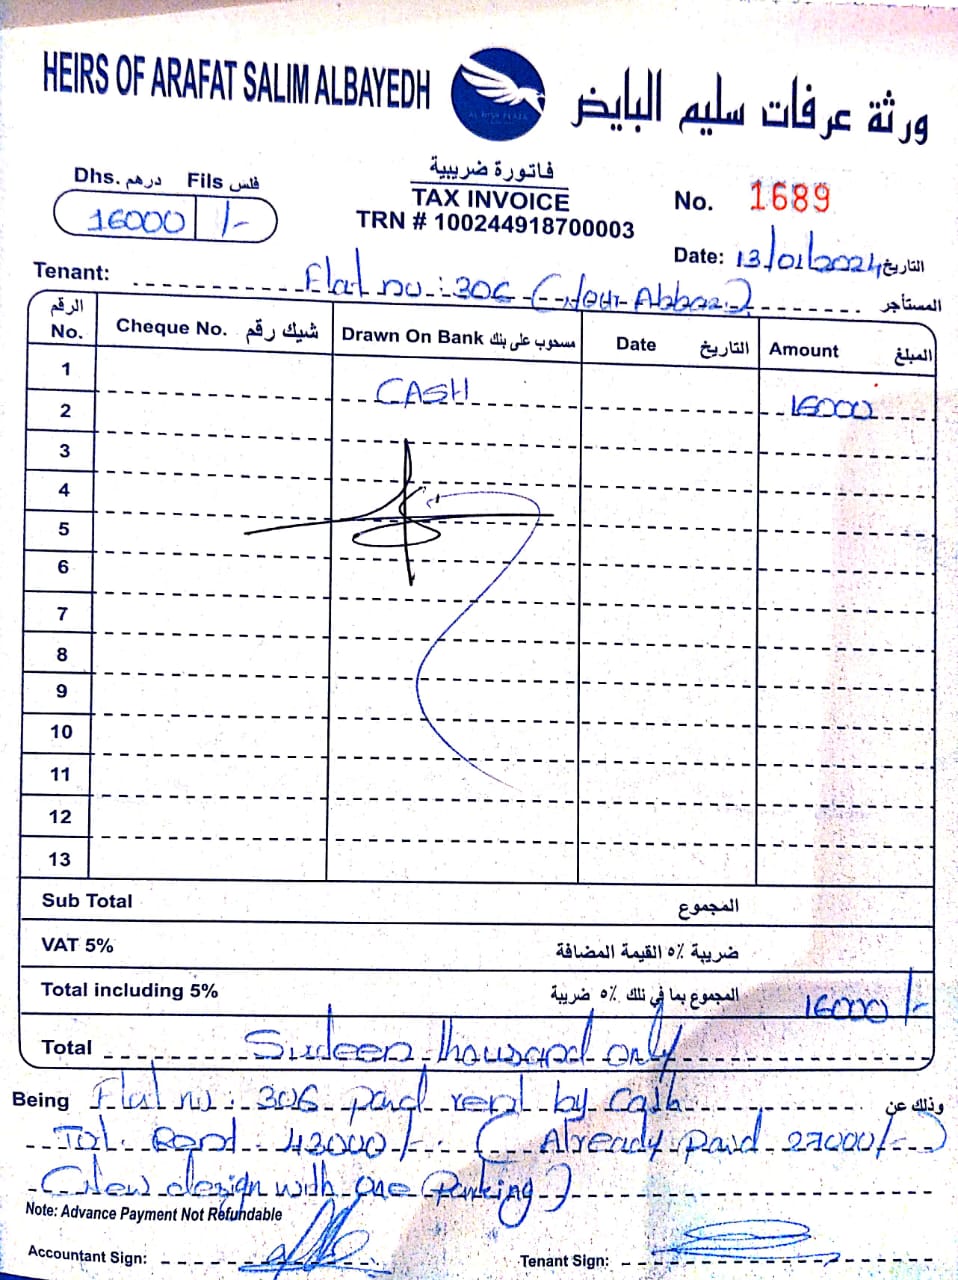 HEIRS OF ARAFAT SALIM ALBAYEDH
ورثة عرفات سليم البايض
Dhs. درهم Fils فلس
16000 /-
فاتورة ضريبية
TAX INVOICE
TRN # 100244918700003
No. 1689
Date: 13/01/2024 التاريخ
Tenant: Flat no: 306 المستأجر
الرقم No. Cheque No. شيك رقم Drawn On Bank مسحوب على بنك Date التاريخ Amount المبلغ
1
2 CASH 16000
3
4
5
6
7
8
9
10
11
12
13
Sub Total المجموع
VAT 5% ضريبة ٥٪ القيمة المضافة
Total including 5% المجموع بما في ذلك ٥٪ ضريبة 16000/-
Total Sixteen thousand only
Being Flat no: 306 paid rent by Cash وذلك عن
Tot. Rent: 43000/- (Already paid 27000/-)
(New design with one Parking)
Note: Advance Payment Not Refundable
Accountant Sign: Tenant Sign: